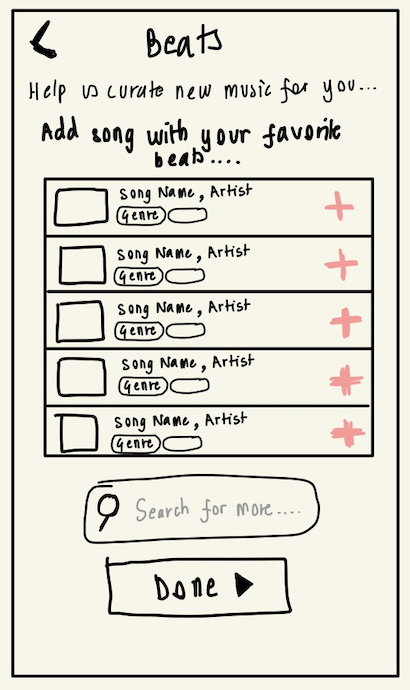 Beats
Help us curate new music for you...
Add song with your favorite
beats....
Song Name, Artist
Genre
Song Name, Artist
Genre
Song Name, Artist
Genre
Song Name, Artist
Genre
Song Name, Artist
Genre
Search for more....
Done